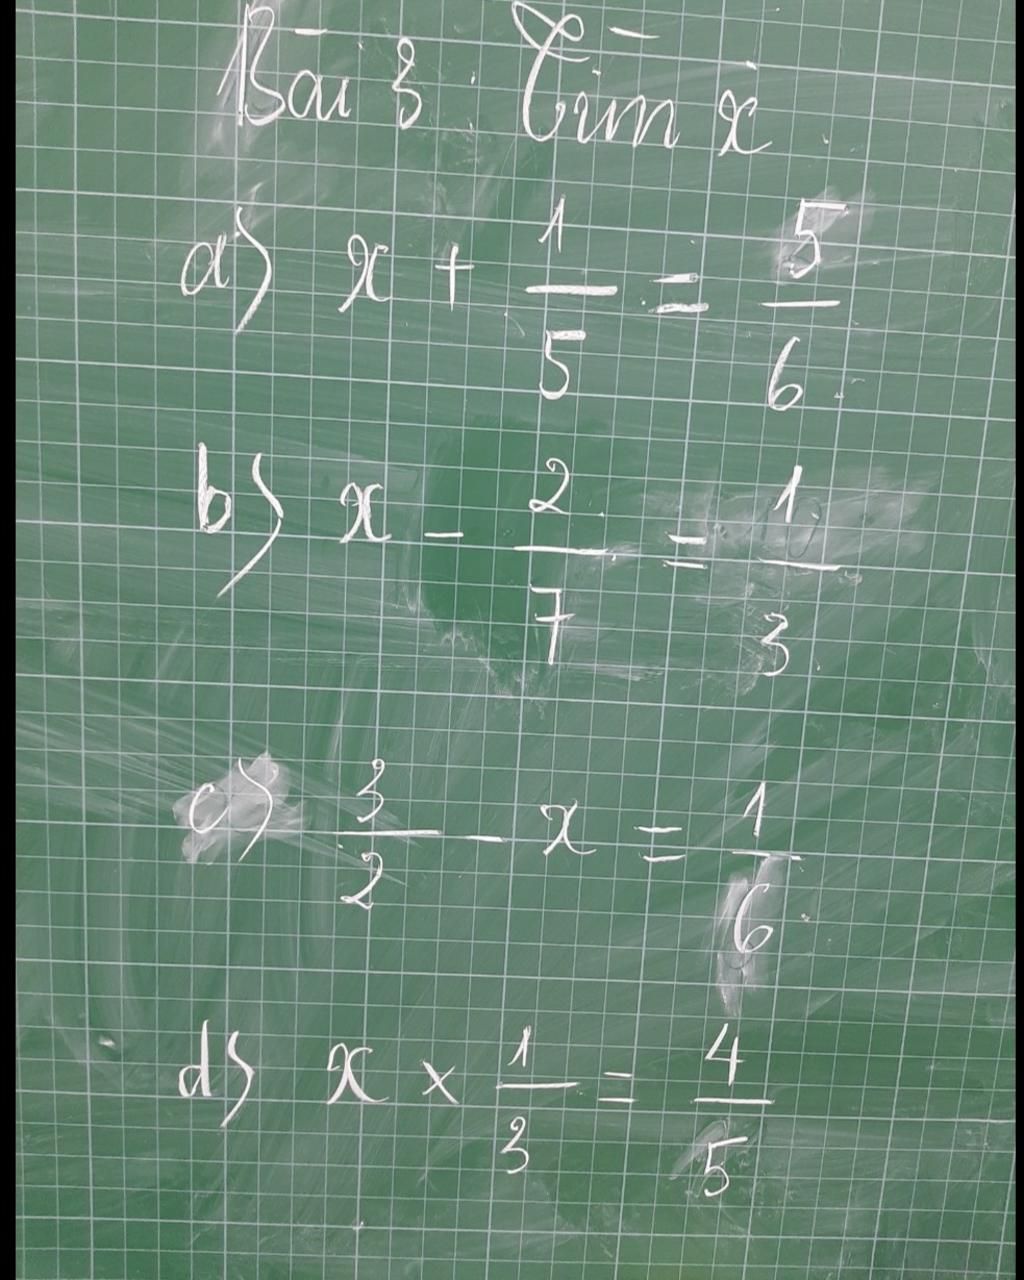 Bài 3. Tìm x.
a) x + 1/5 = 5/6
b) x - 2/7 = 1/3
c) 3/2 - x = 1/6
d) x × 1/3 = 4/5